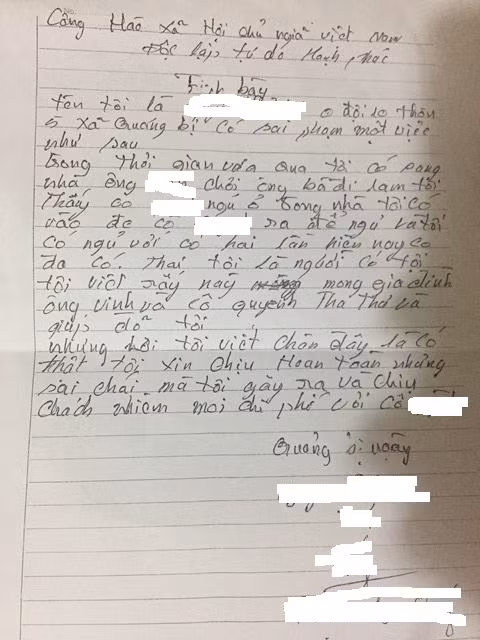 Công Hào Xã Hội chủ nghĩa việt Nam
Độc lập, tự do Hạnh, phúc
Trình bày
Tên tôi là ở đội 10 thôn
5 xã Quảng bị có sai phạm một việc
như sau
Trong thời gian vừa qua tôi có sang
nhà ông chơi ông bà đi làm tôi
Thấy cô ngủ ở trong nhà tôi có
vào đe cô ra để ngủ và tôi
có ngủ với cô hai lần hiện nay cô
đa có. Thai tôi là người có tội
tôi viết rấy này mong gia đình
ông vinh và cô quyên Tha Thơ và
giúp đỡ tôi
những lời tôi viết chên đây là có
thật tôi xin chịu Hoan toan những
sai chái mà tôi gây ra và chịu
chách nhiệm mọi chi phế với cô
Quảng bị ngày